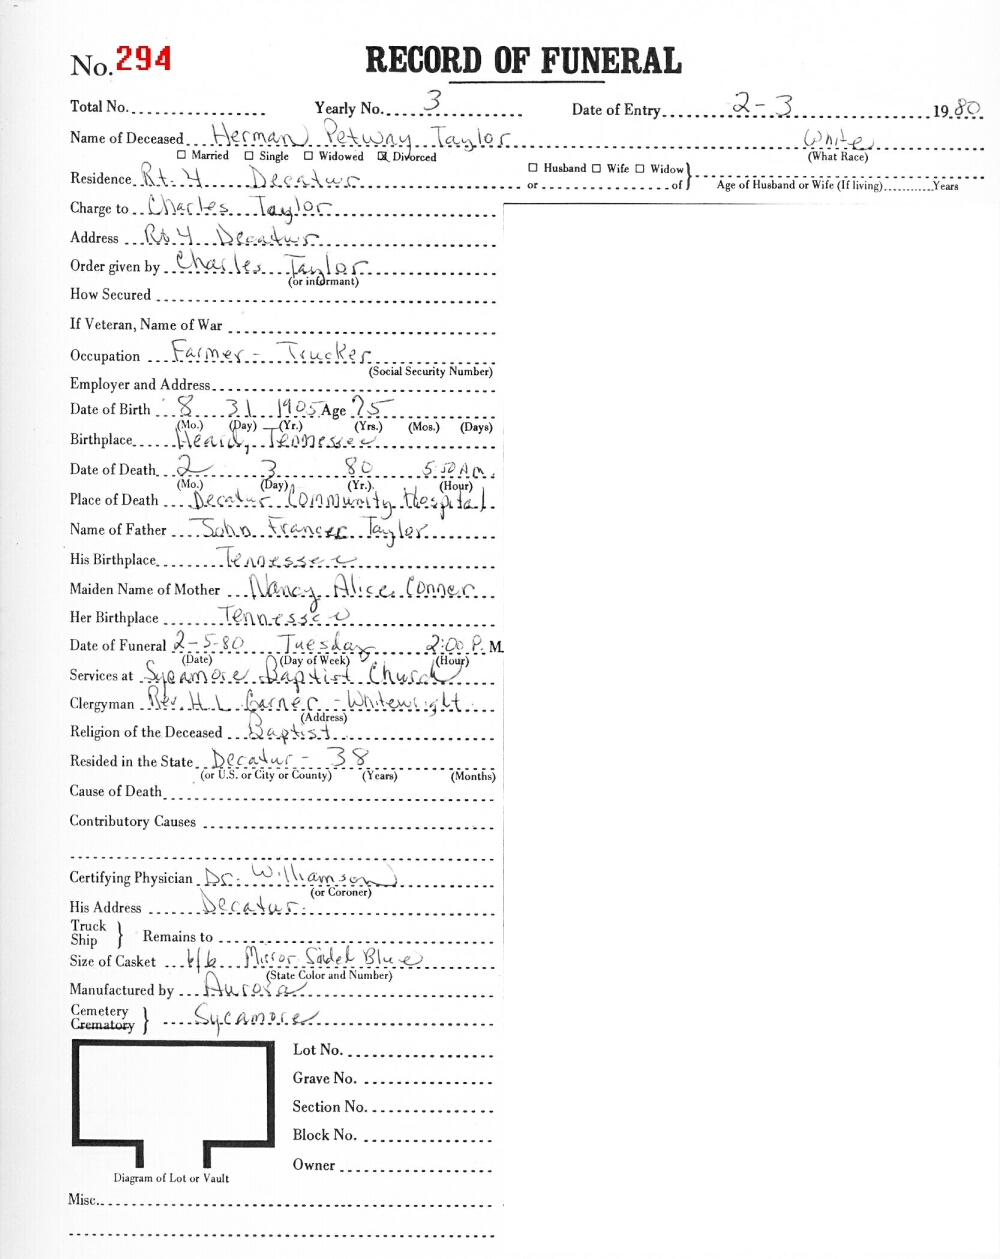 No. 294 RECORD OF FUNERAL
Total No. Yearly No. 3 Date of Entry 2-3 1980
Name of Deceased Herman Petway Taylor White
☐ Married ☐ Single ☐ Widowed ☒ Divorced (What Race)
Residence Rt. 4 Decatur ☐ Husband ☐ Wife ☐ Widow
or of Age of Husband or Wife (If living) Years
Charge to Charles Taylor
Address Rt 4 Decatur
Order given by Charles Taylor
(or informant)
How Secured
If Veteran, Name of War
Occupation Farmer - Trucker
(Social Security Number)
Employer and Address
Date of Birth 8 31 1905 Age 75
(Mo.) (Day) (Yr.) (Yrs.) (Mos.) (Days)
Birthplace Heard, Tennessee
Date of Death 2 3 80 5:50 AM.
(Mo.) (Day) (Yr.) (Hour)
Place of Death Decatur Community Hospital
Name of Father John Frances Taylor
His Birthplace Tennessee
Maiden Name of Mother Nancy Alice Conner
Her Birthplace Tennessee
Date of Funeral 2-5-80 Tuesday 2:00 P. M.
(Date) (Day of Week) (Hour)
Services at Sycamore Baptist Church
Clergyman Rev. H L Garner - Whitewright
(Address)
Religion of the Deceased Baptist
Resided in the State Decatur - 38
(or U.S. or City or County) (Years) (Months)
Cause of Death
Contributory Causes
Certifying Physician Dr. Williamson
(or Coroner)
His Address Decatur.
Truck
Ship } Remains to
Size of Casket 6/6 Mirror Blue
(State Color and Number)
Manufactured by Aurora
Cemetery
Crematory } Sycamore
Lot No.
Grave No.
Section No.
Block No.
Owner
Diagram of Lot or Vault
Misc.